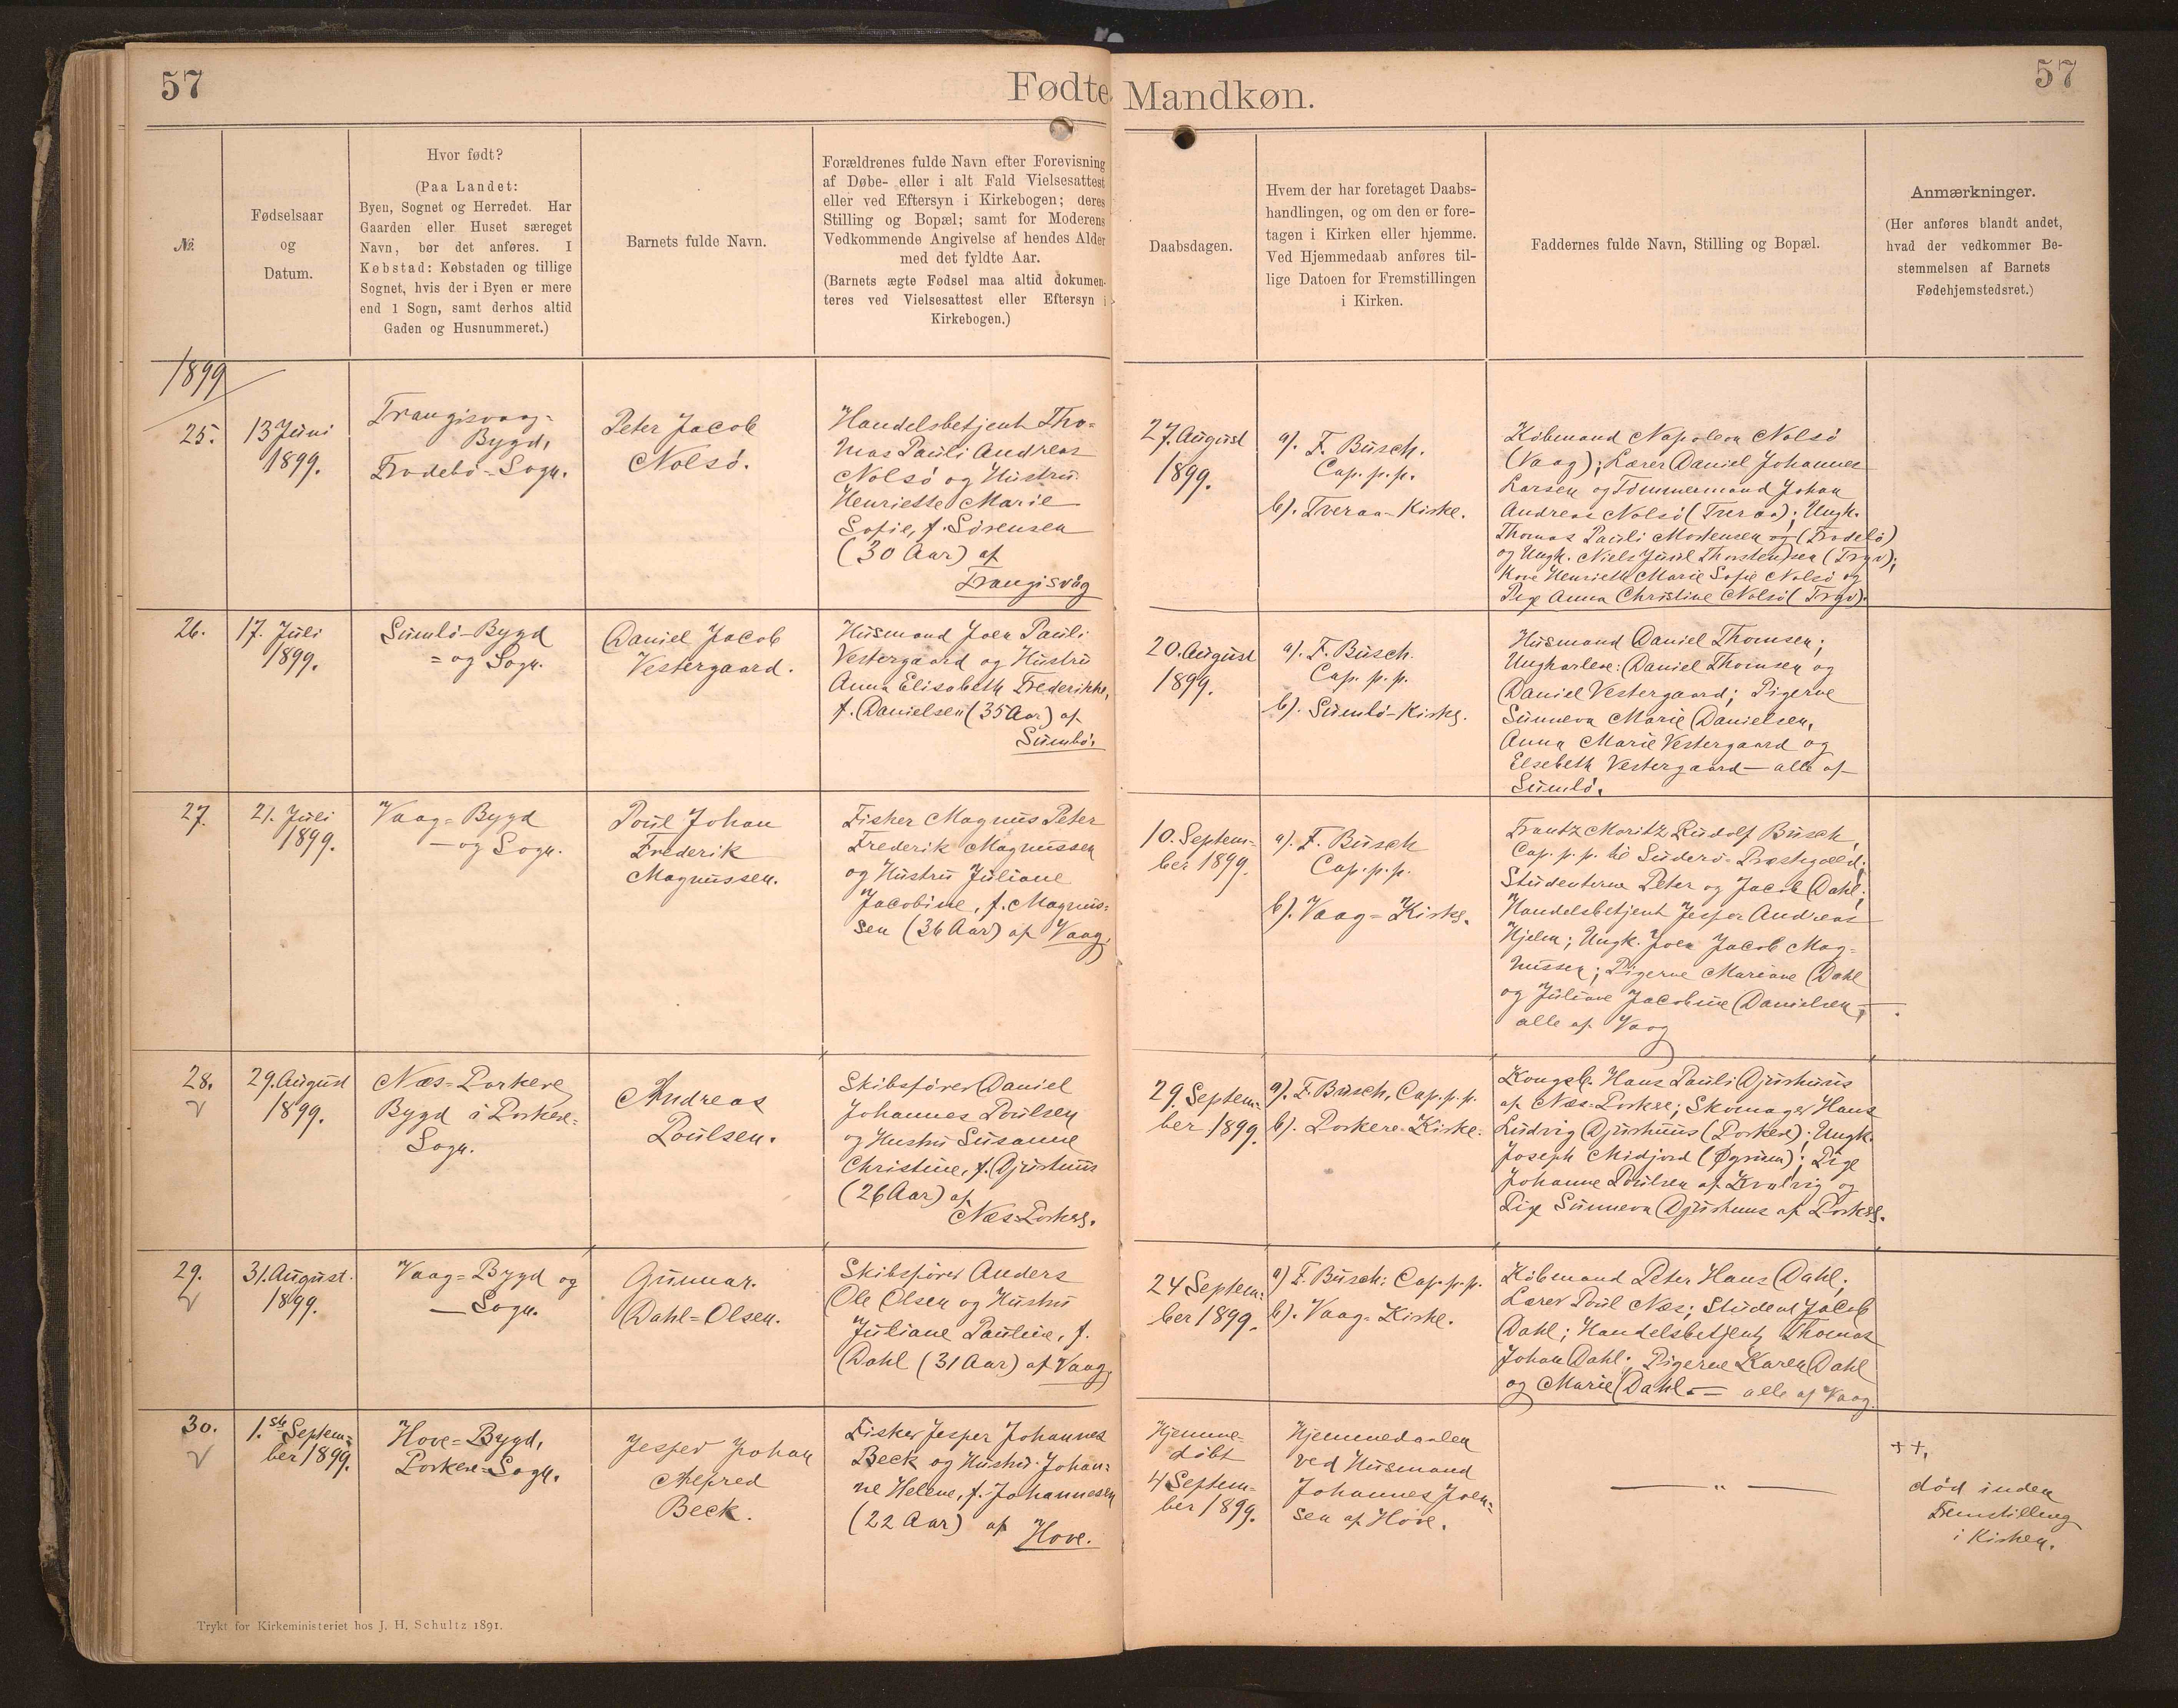 57
Fødte Mandkøn.
57
№
Fødselsaar
og
Datum.
Hvor født?
(Paa Landet:
Byen, Sognet og Herredet. Har
Gaarden eller Huset særeget
Navn, bør det anføres. I
Købstad: Købstaden og tillige
Sognet, hvis der i Byen er mere
end 1 Sogn, samt derhos altid
Gaden og Husnummeret.)
Barnets fulde Navn.
Forældrenes fulde Navn efter Forevisning
af Døbe- eller i alt Fald Vielsesattest
eller ved Eftersyn i Kirkebogen; deres
Stilling og Bopæl; samt for Moderens
Vedkommende Angivelse af hendes Alder
med det fyldte Aar.
(Barnets ægte Fødsel maa altid dokumen-
teres ved Vielsesattest eller Eftersyn i
Kirkebogen.)
Daabsdagen.
Hvem der har foretaget Daabs-
handlingen, og om den er fore-
tagen i Kirken eller hjemme.
Ved Hjemmedaab anføres til-
lige Datoen for Fremstillingen
i Kirken.
Faddernes fulde Navn, Stilling og Bopæl.
Anmærkninger.
(Her anføres blandt andet,
hvad der vedkommer Be-
stemmelsen af Barnets
Fødehjemstedsret.)
1899
25.
13 Juni
1899.
Trangisvaag-
Bygd,
Frodebø-Sogn.
Peter Jacob
Nolsø.
Handelsbetjent Tho-
mas Pauli Andreas
Nolsø og Hustru
Henriette Marie
Sofie, f. Sørensen
(30 Aar) af
Trangisvåg
27. August
1899.
a). F. Busch.
Cap. p. p.
b). Tveraa-Kirke.
Købmand Napoleon Nolsø
(Vaag); Lærer Daniel Johannes
Larsen og Tømmermand Johan
Andreas Nolsø (Tveraa); Ungk.
Thomas Pauli Mortensen og (Frodebø)
og Ungk. Niels Juul Thorstensen (Trgv);
Kone Henriette Marie Sofie Nolsø og
Pige Anna Christine Nolsø (Trgv).
26.
17. Juli
1899.
Sumbø-Bygd
= og Sogn.
Daniel Jacob
Vestergaard.
Husmand Joen Pauli
Vestergaard og Hustru
Anna Elisabeth Frederikke,
f. Danielsen (35 Aar) af
Sumbø.
20. August
1899.
a). F. Busch.
Cap. p. p.
b). Sumbø-Kirke.
Husmand Daniel Thomsen;
Ungkarlene: Daniel Thomsen og
Daniel Vestergaard; Pigerne
Sunneva Marie Danielsen,
Anna Marie Vestergaard og
Elsebeth Vestergaard — alle af
Sumbø.
27.
21. Juli
1899.
Vaag-Bygd
— og Sogn.
Poul Johan
Frederik
Magnussen.
Fisker Magnus Peter
Frederik Magnussen
og Hustru Juliane
Jacobine, f. Magnus-
sen (36 Aar) af Vaag.
10. Septem-
ber 1899.
a). F. Busch
Cap. p. p.
b). Vaag-Kirke.
Frantz Moritz Rudolf Busch,
Cap. p. p. til Suderø-Præstegæld;
Studenterne Peter og Jacob Dahl;
Handelsbetjent Jesper Andreas
Hjelm; Ungk. Joen Jacob Mag-
nussen; Pigerne Mariane Dahl
og Juliane Jacobine Danielsen —
alle af Vaag.
28.
29. August
1899.
Næs-Porkere
Bygd i Porkere-
Sogn.
Andreas
Poulsen.
Skibsfører Daniel
Johannes Poulsen
og Hustru Susanne
Christine, f. Djurhuus
(26 Aar) af
Næs-Porkere.
29. Septem-
ber 1899.
a). F. Busch, Cap. p. p.
b). Porkere-Kirke.
Kongsb. Hans Pauli Djurhuus
af Næs-Porkere; Skomager Hans
Ludvig Djurhuus (Porkere); Ungk.
Joseph Midjord (Øgrum); Pige
Johanne Poulsen af Kvalvig og
Pige Sunneva Djurhuus af Porkere.
29.
31. August.
1899.
Vaag-Bygd og
— Sogn.
Gunnar.
Dahl-Olsen.
Skibsfører Anders
Ole Olsen og Hustru
Juliane Pauline, f.
Dahl (31 Aar) af Vaag.
24 Septem-
ber 1899.
a) F. Busch: Cap. p. p.
b). Vaag-Kirke.
Købmand Peter Hans Dahl;
Lærer Poul Næs; Student Jacob
Dahl; Handelsbetjent Thomas
Johan Dahl; Pigerne Karen Dahl
og Marie Dahl — alle af Vaag.
30.
1.ste Septem-
ber 1899.
Hove-Bygd,
Porkere-Sogn.
Jesper Johan
Alfred
Beck.
Fisker Jesper Johannes
Beck og Hustru Johan-
ne Helene, f. Johannesen
(22 Aar) af
Hove.
Hjemme-
døbt
4 Septem-
ber 1899.
Hjemmedøbt
ved Husmand
Johannes Joen-
sen af Hove.
— „ —
++,
død inden
Fremstilling
i Kirken.
Trykt for Kirkeministeriet hos J. H. Schultz 1891.